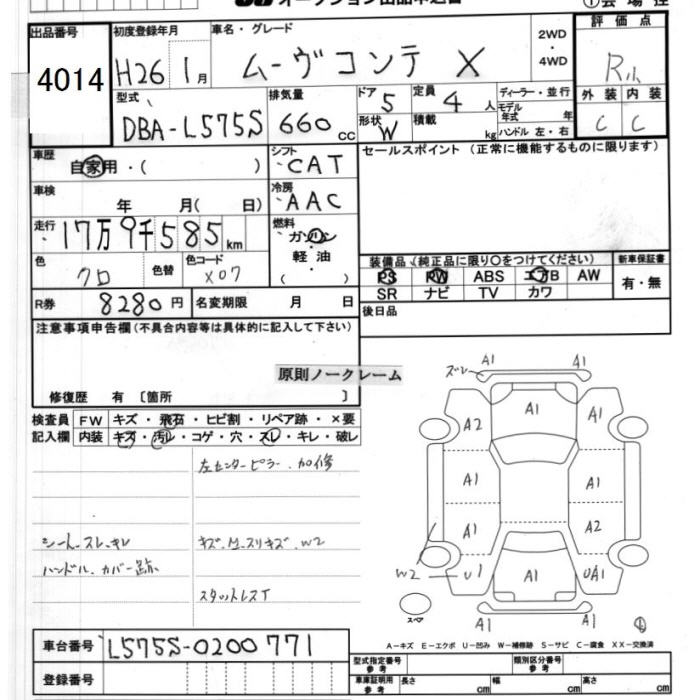 出品番号 4014
初度登録年月 H26 1月
車名・グレード ムーヴコンテ X
2WD・4WD
評価点 R小
外装 内装
C C
型式 DBA-L575S
排気量 660cc
ドア 5 定員 4人
形状 W 積載 kg
ディーラー・並行
モデル年式 年
ハンドル 左・右
車歴 自家用・( )
シフト CAT
セールスポイント (正常に機能するものに限ります)
車検 年 月( 日)
冷房 AAC
走行 17万9千585km
燃料 ガソリン 軽油 ( )
色 クロ 色替 色コード X07
装備品 (純正品に限り○をつけてください) 新車保証書
PS PW ABS エアB AW 有・無
SR ナビ TV カワ
R券 8280円 名変期限 月 日
後日品
注意事項申告欄(不具合内容等は具体的に記入して下さい)
原則ノークレーム
修復歴 有 〔箇所 〕
検査員 FW キズ・飛石・ヒビ割・リペア跡・×要
記入欄 内装 キズ・汚レ・コゲ・穴・スレ・キレ・破レ
左センターピラー.加修
シート.スレ.キレ
キズ.M.スリキズ.W2
ハンドル.カバー跡
スタットレスT
ズレ A1 A1
A2 A1 A1
A1 A1
A1 A2
W2 U1 A1 UA1
スペア A1 A1
車台番号 L575S-0200771
登録番号
A-キズ E-エクボ U-凹み W-補修跡 S-サビ C-腐食 XX-交換済
型式指定番号 参考 類別区分番号 参考
車庫証明用 参考 長さ cm 幅 cm 高さ cm